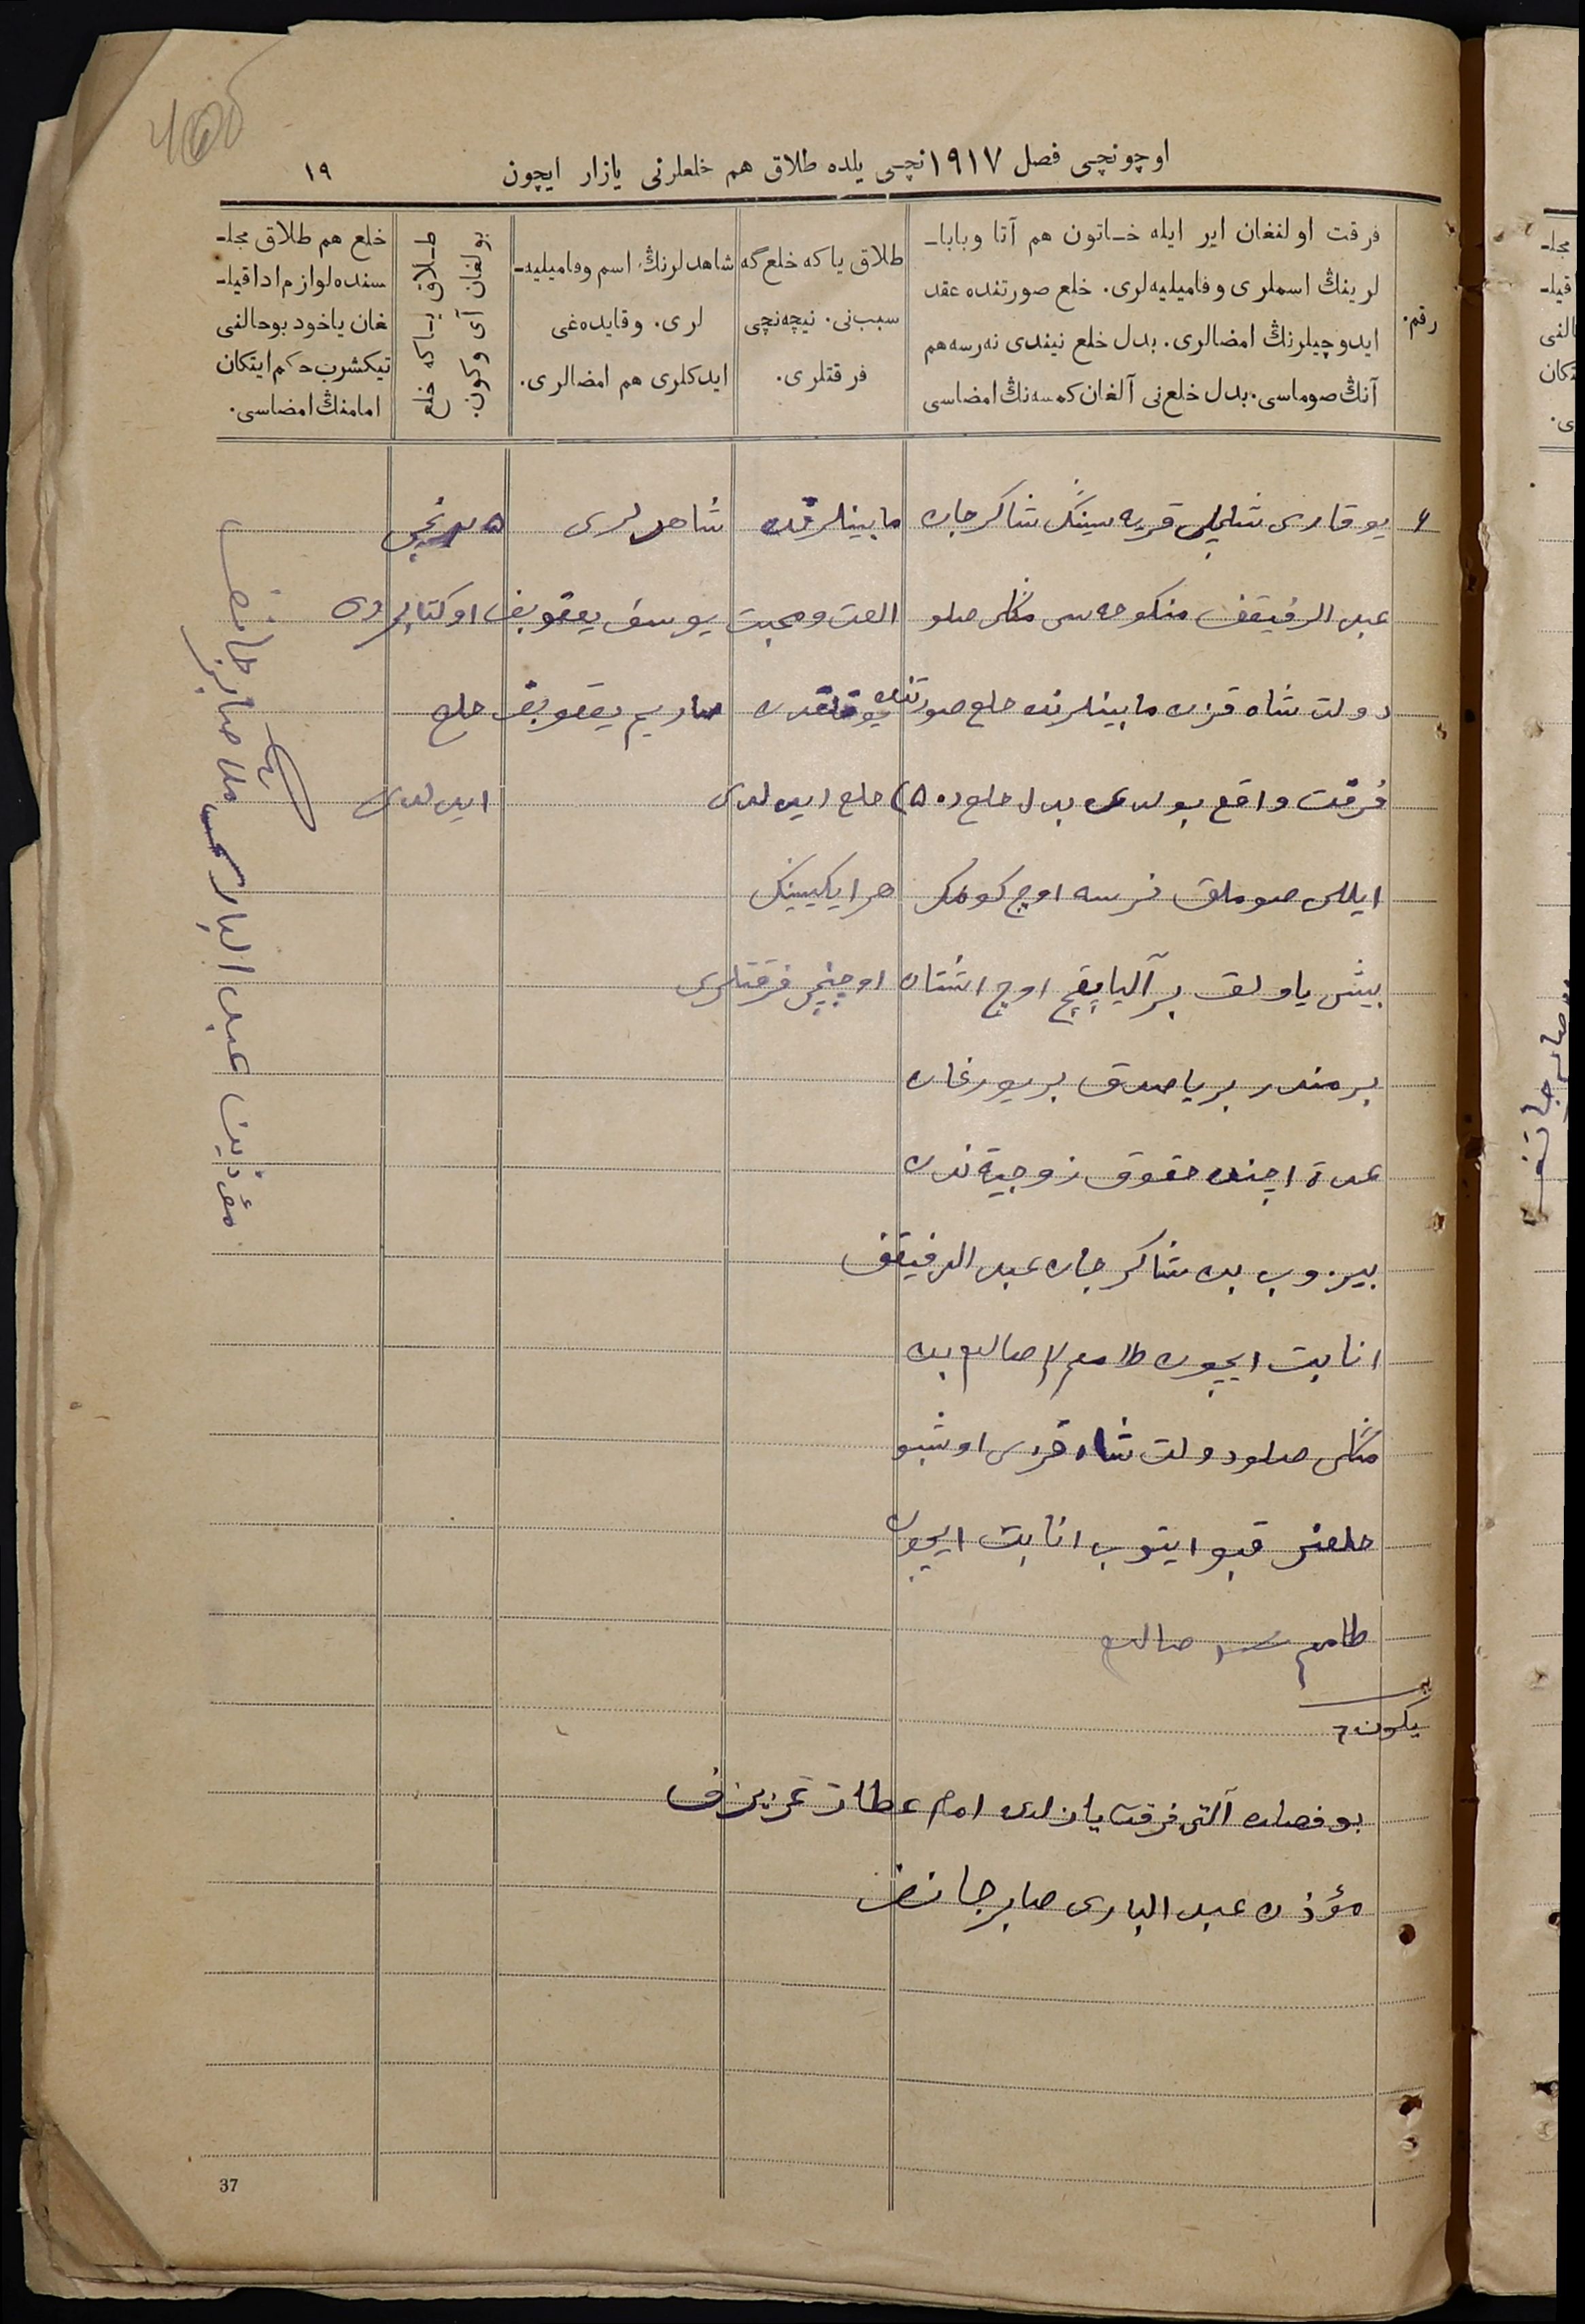 اوچونچی فصل ۱۹۱۷ نچی یلده طلاق هم خلعلرنی یازار ایچون
۱۹
رقم.
فرقت اولنغان ایر ایله خاتون هم آتا وبابا-
لرینڭ اسملری وفامیلیه‌لری. خلع صورتنده عقد
ایدوچیلرنڭ امضالری. بدل خلع نیندی نه‌رسه هم
آنڭ صوماسی. بدل خلع‌نی آلغان کمسه‌نڭ امضاسی
طلاق یا که خلع گه
سبب‌نی. نیچه‌نچی
فرقتلری.
شاهدلرنڭ اسم وفامیلیه-
لری. وقایده‌غی
ایدکلری هم امضالری.
طلاق یاکه خلع
بولغان آی وکون.
خلع هم طلاق مجلـ-
سنده لوازم ادا قیلـ-
غان یاخود بوحالنی
تیکشرب حکم ایتکان
امامنڭ امضاسی.
۶
یوقاری قریه سینڭ شاکرجان
عبد الرفیقف منکوحه سی صلو
دولت شاه قزی مابینلرنده خلع صورتنده
فرقت واقع بولدی بدل خلع (۵۰)
ایللی صوملق نرسه اوچ کولمک
بیش یاولق بر آلیاپقچ اوچ اشتان
بر مندر بر یاصدق بر یورغان
عدة اچنده حقوق زوجیة ندن
بیزوب بن شاکرجان عبد الرفیقف
انابت ایچون صالدم بن
صلو دولت شاه قزی اوشبو
خلعنی قبو ایتوب انابت ایچون
صالدم
مابینلرنده
الفت ومحبت
یوقلقدن
خلع ایدلدی
هر ایکیسینڭ
اوچنچی فرقتلری
شاهدلری
یوسف یعقوبف
یعقوبف
۵ نچی
اوکتابرده
خلع
ایدلدی
مؤذن عبد الباری
یکون ۶
بو فصلده آلتی فرقت یازلدی امام عطاء عزیزف
مؤذن عبد الباری صابرجانف
37